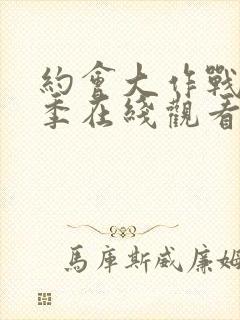 約會大作戰
季在綫觀看
馬庫斯威廉姆